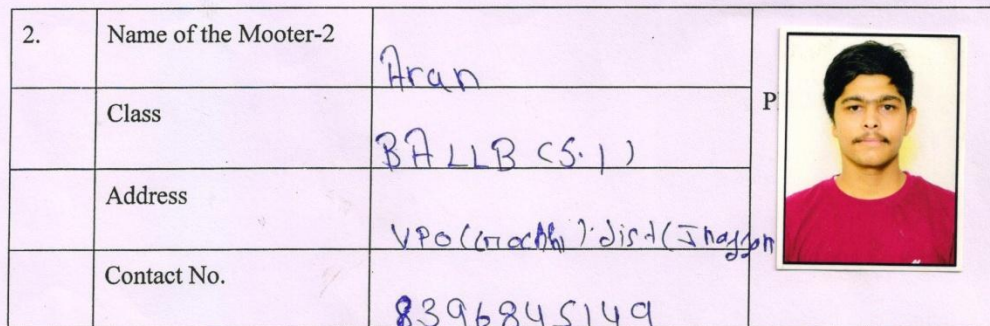 2. Name of the Mooter-2 Aran
Class BA LLB (5.1)
P
Address VPO ( dist (
Contact No. 8396845149